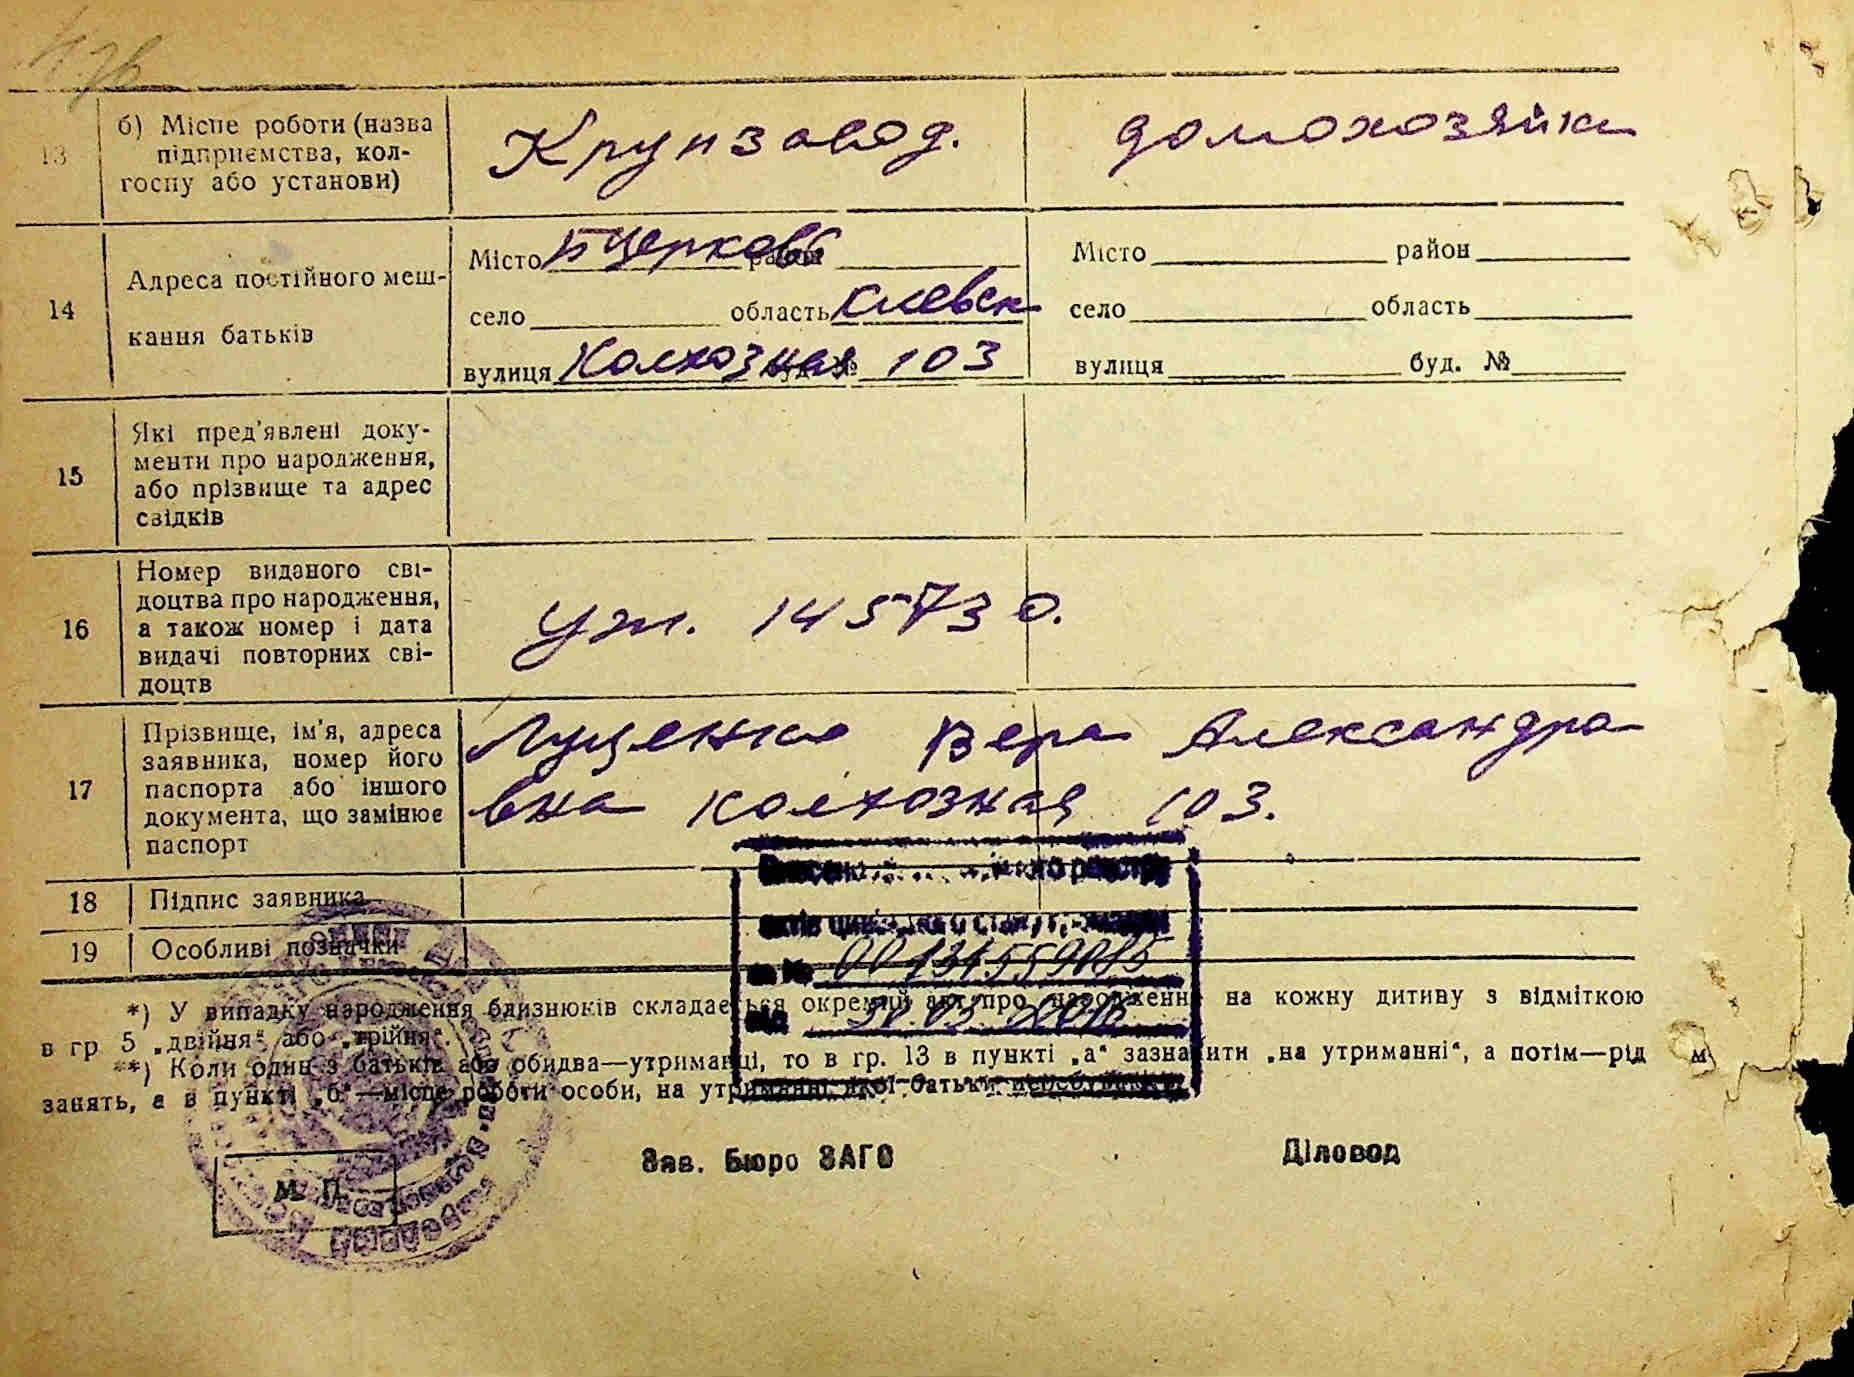 13 б) Місце роботи (назва
підприємства, кол-
госпу або установи)
Крупзавод.
домохозяйка
14 Адреса постійного меш-
кання батьків
Місто Бцерковь район
село область Киевск
вулиця Колхозная № 103
Місто район
село область
вулиця буд. №
15 Які пред'явлені доку-
менти про народження,
або прізвище та адрес
свідків
16 Номер виданого сві-
доцтва про народження,
а також номер і дата
видачі повторних сві-
доцтв
145730.
17 Прізвище, ім'я, адреса
заявника, номер його
паспорта або іншого
документа, що замінює
паспорт
Луценко Вера Александра
вна Колхозная 103.
18 Підпис заявника
19 Особливі позначки
за № 00134559085
від 30.03.2016
*) У випадку народження близнюків складається окремий акт про народження на кожну дитину з відміткою
в гр 5 „двійня“ або „трійня“.
**) Коли один з батьків або обидва—утриманці, то в гр. 13 в пункті „а“ зазначити „на утриманні“, а потім—рід
занять, а в пункті „б“—місце роботи особи, на утриманні якої батьки
Зав. Бюро ЗАГС
Діловод
М. П.